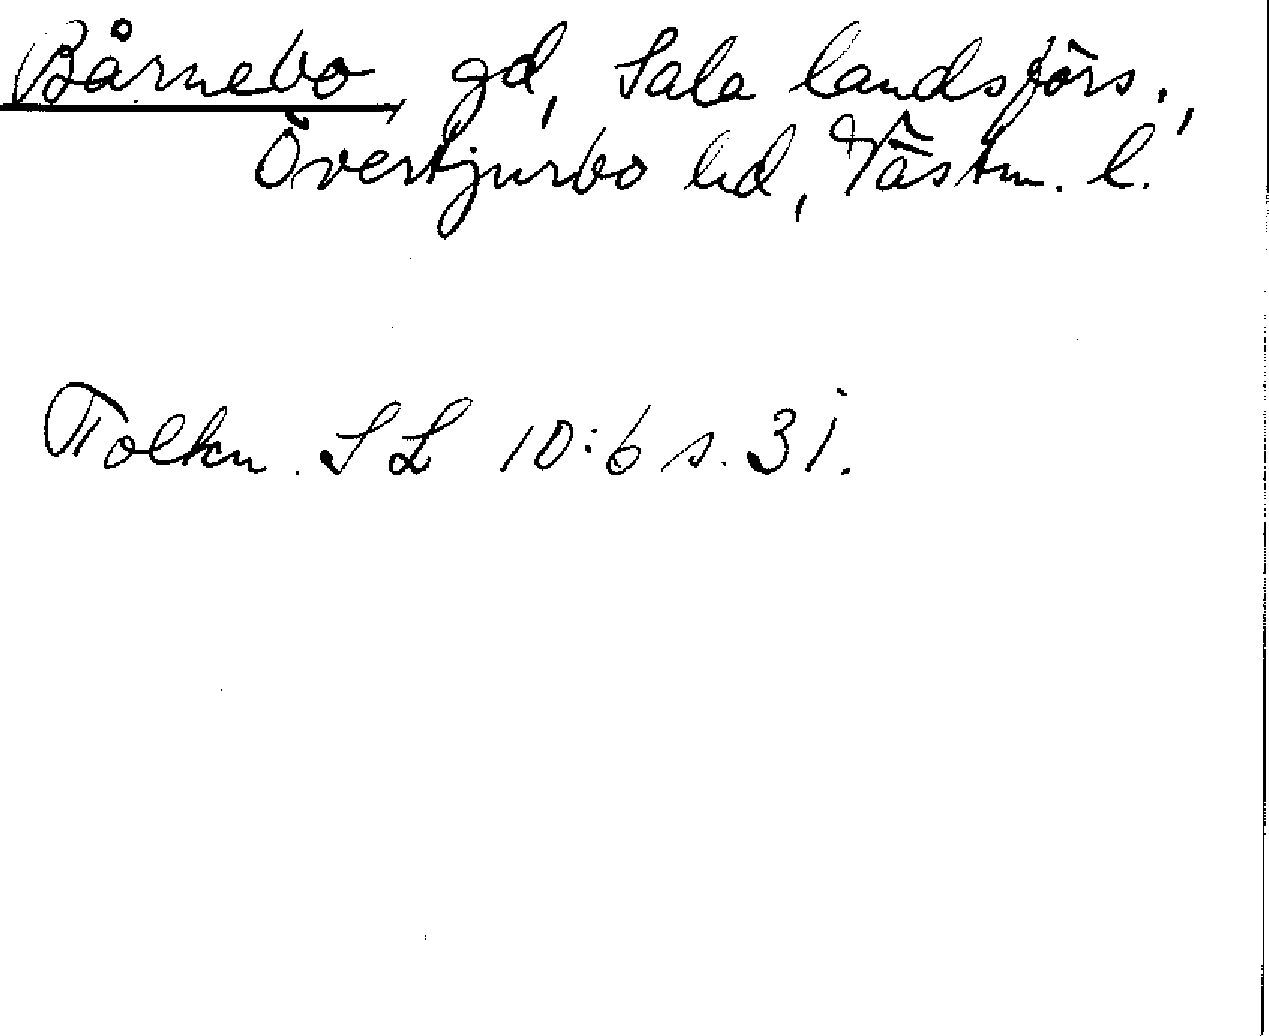 Bårnebo, gd, Sala landsförs.,
Övertjurbo hd, Västm. l.
Tolkn. SL 10:6 s. 31.